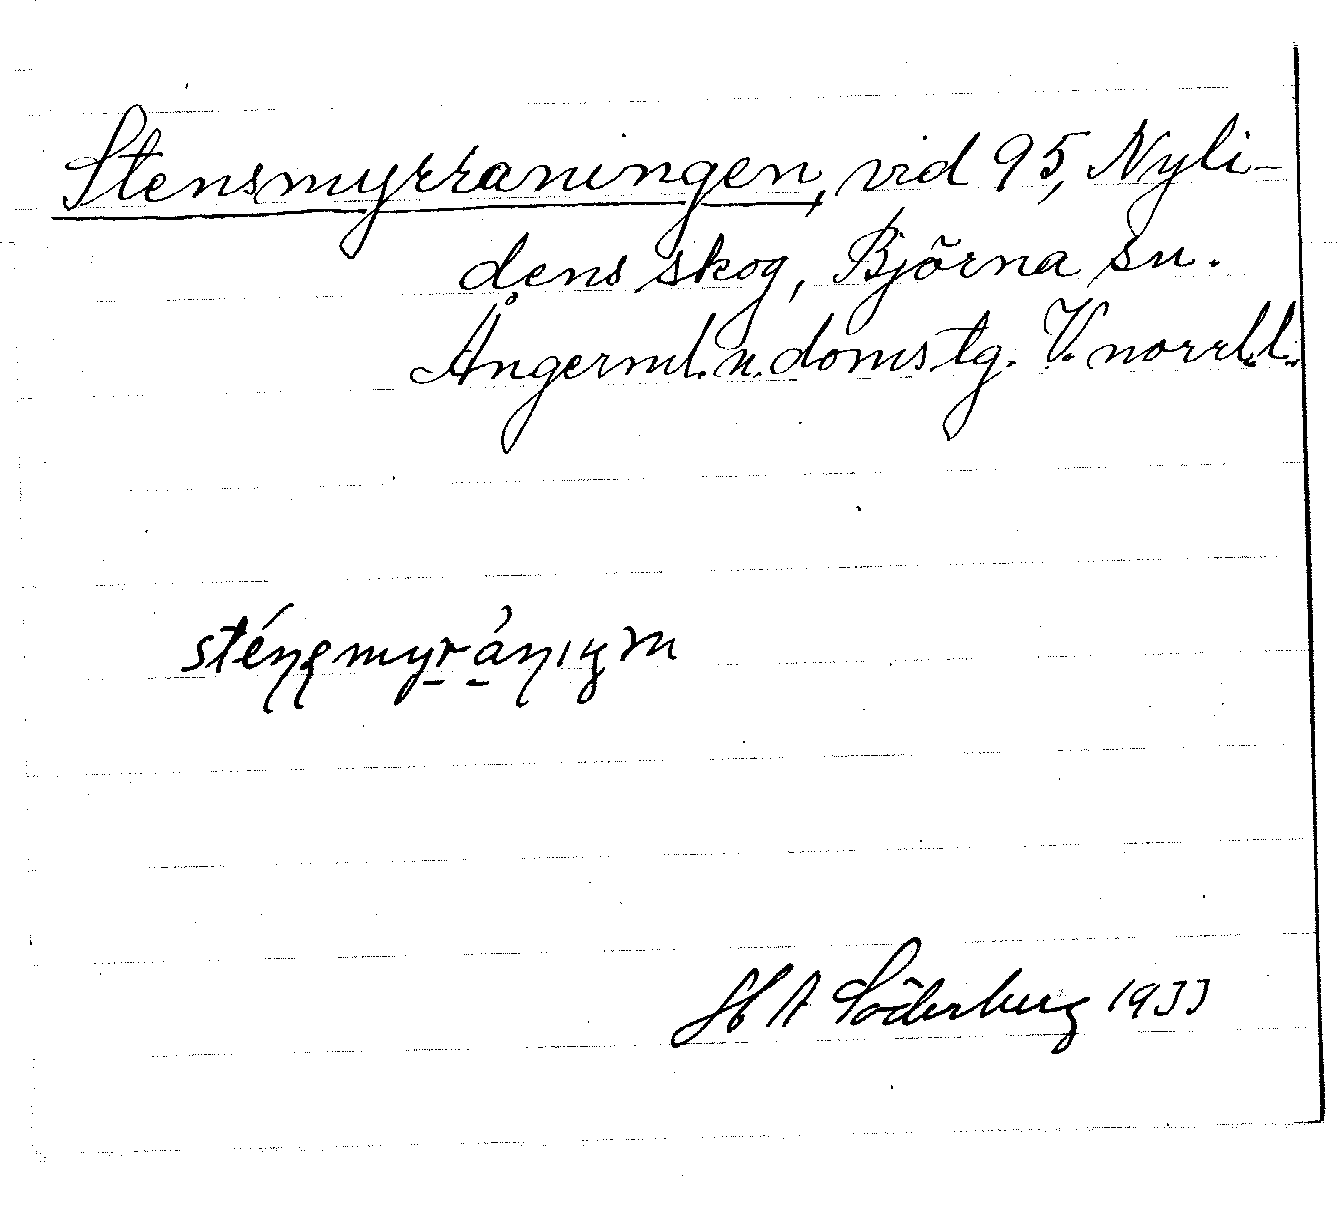 Stensmyrraningen, vid 95, Nyli-
dens skog, Björna sn.
Ångerml. n. domstg. V. norrl.l.
H A Söderberg 1933